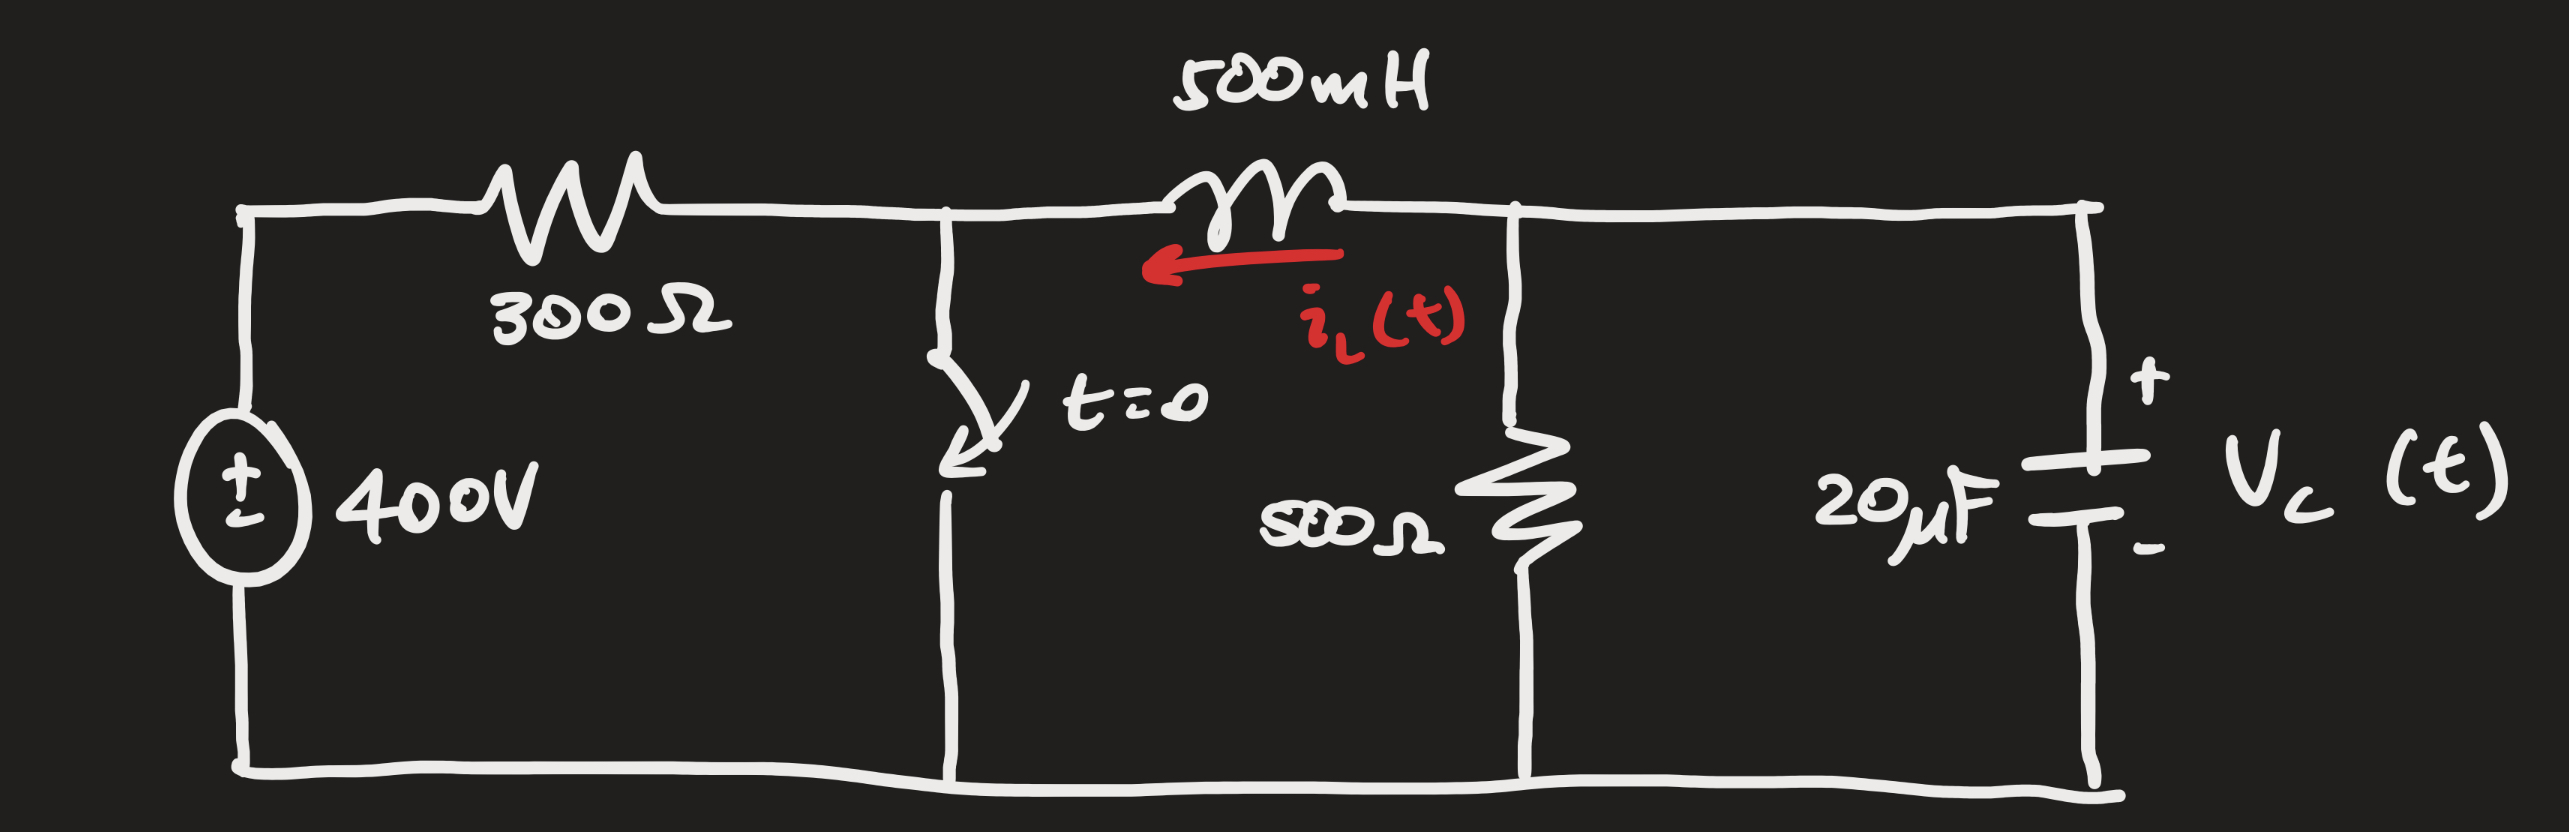 500mH
300Ω
i_L(t)
t=0
+
-
400V
500Ω
20μF
+
-
V_C (t)